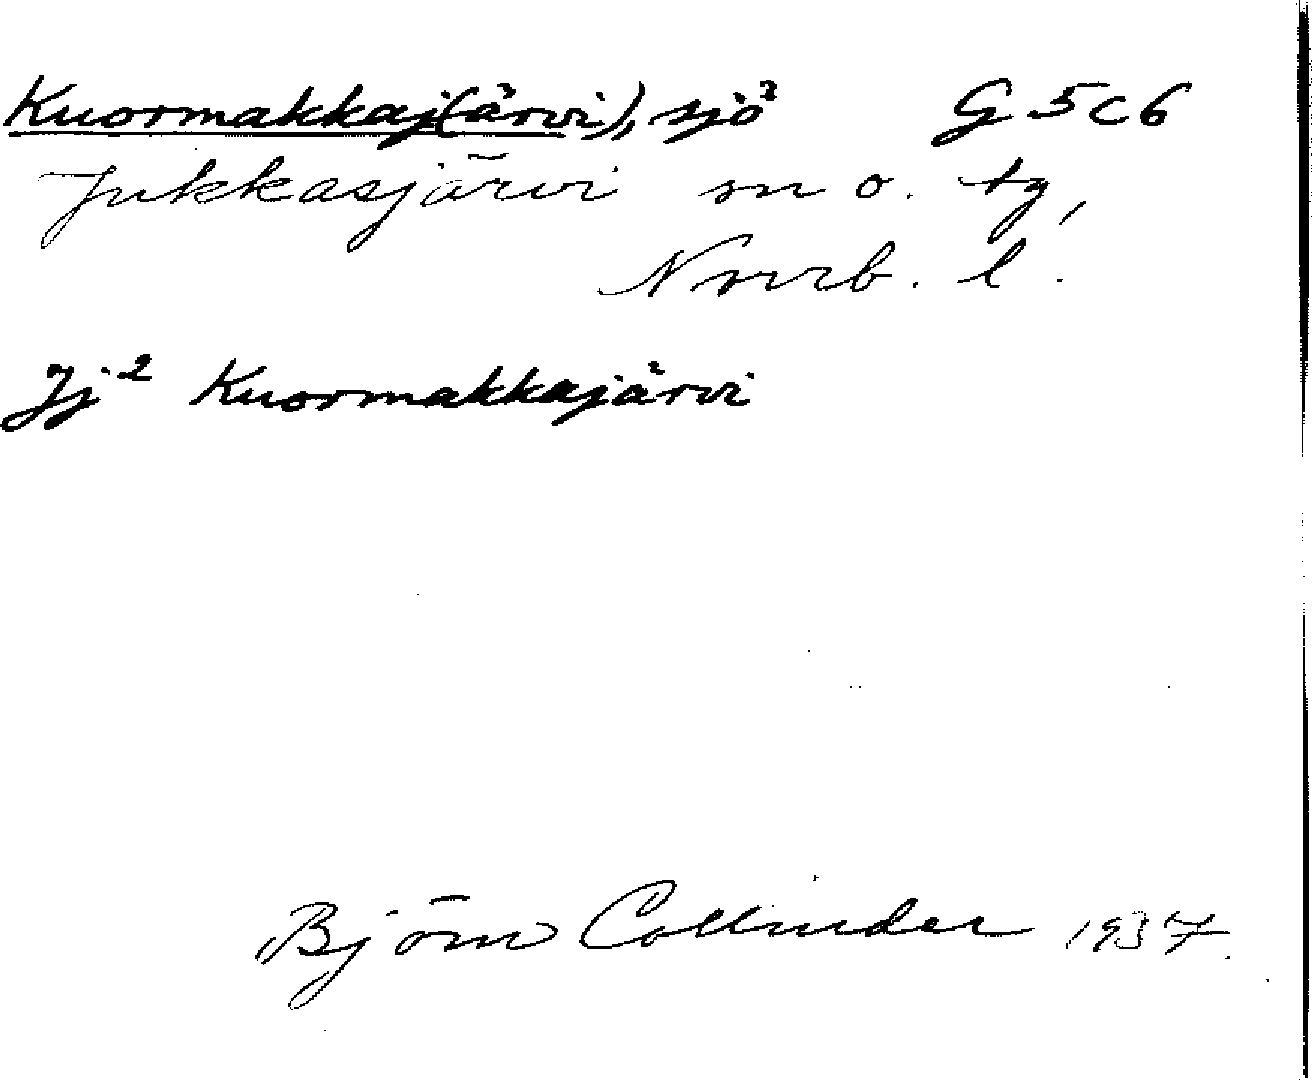 Kuormakkaj(ärvi), sjö G 5 c 6
Jukkasjärvi sn o. tg,
Norrb. l.
Jj² Kuormakkajärvi
Björn Collinder 1937.